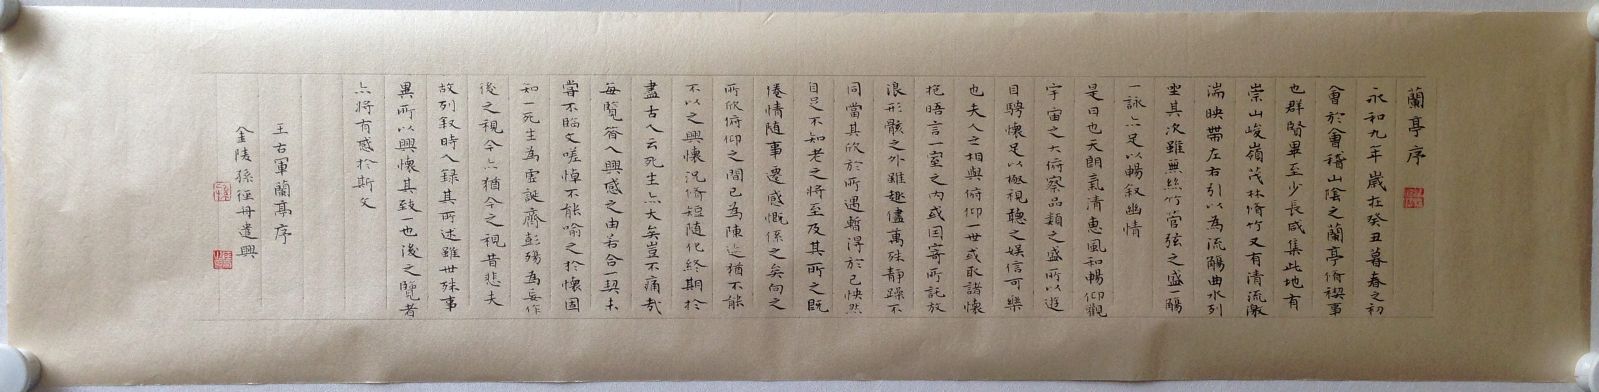 蘭亭序
永和九年歲在癸丑暮春之初
會於會稽山陰之蘭亭脩禊事
也群賢畢至少長咸集此地有
崇山峻嶺茂林脩竹又有清流激
湍映帶左右引以為流觴曲水列
坐其次雖無絲竹管弦之盛一觴
一詠亦足以暢叙幽情
是日也天朗氣清惠風和暢仰觀
宇宙之大俯察品類之盛所以遊
目騁懷足以極視聽之娛信可樂
也夫人之相與俯仰一世或取諸懷
抱晤言一室之內或因寄所託放
浪形骸之外雖趣儘萬殊靜躁不
同當其欣於所遇暫得於己怏然
自足不知老之將至及其所之既
倦情隨事遷感慨係之矣向之
所欣俯仰之間已為陳迹猶不能
不以之興懷況脩短隨化終期於
盡古人云死生亦大矣豈不痛哉
每覽昔人興感之由若合一契未
嘗不臨文嗟悼不能喻之於懷固
知一死生為虛誕齊彭殤為妄作
後之視今亦猶今之視昔悲夫
故列叙時人錄其所述雖世殊事
異所以興懷其致一也後之覽者
亦將有感於斯文
王右軍蘭亭序
金陵孫徑丹遣興